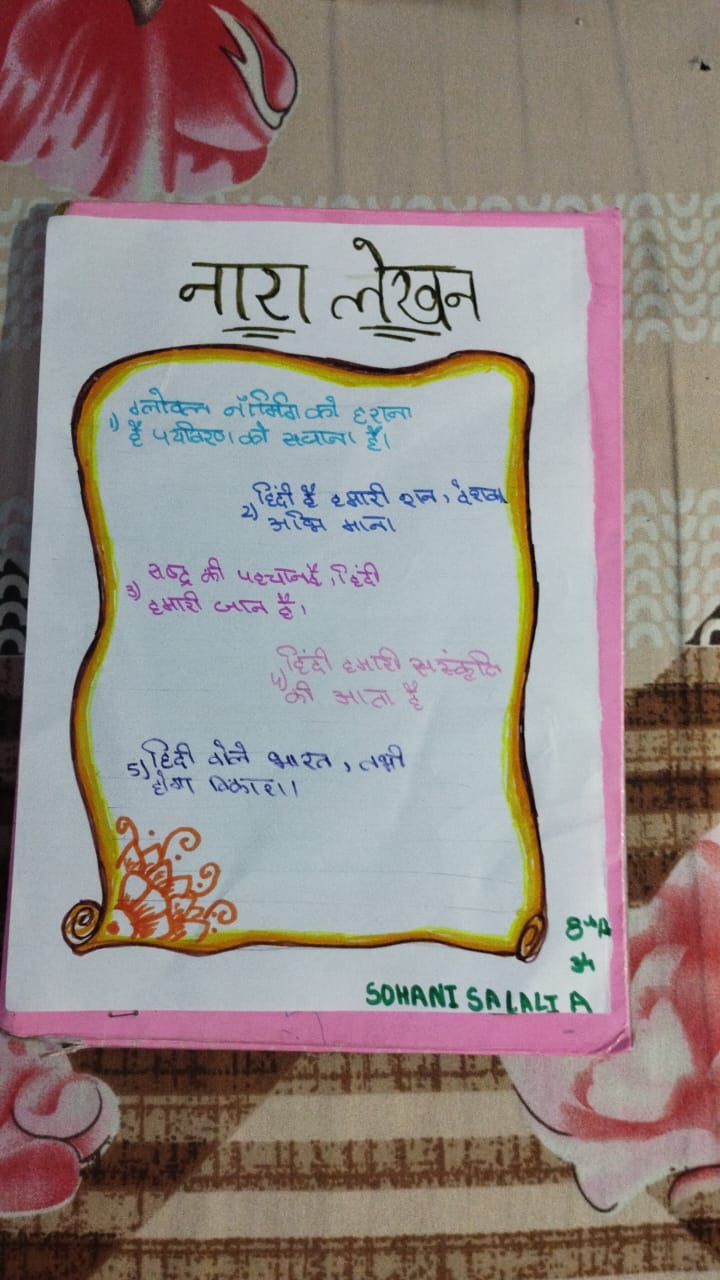 नारा लेखन
1) ग्लोबल वॉर्मिंग को हराना
है पर्यावरण को बचाना है।
2) हिंदी है हमारी शान, देशका
मान।
3) राष्ट्र की पहचान है, हिंदी
हमारी जान है।
4) हिंदी हमारी संस्कृति
की आता है
5) हिंदी बोले भारत, तभी
होगा विकास।
8th A
34
SOHANI SALALI A